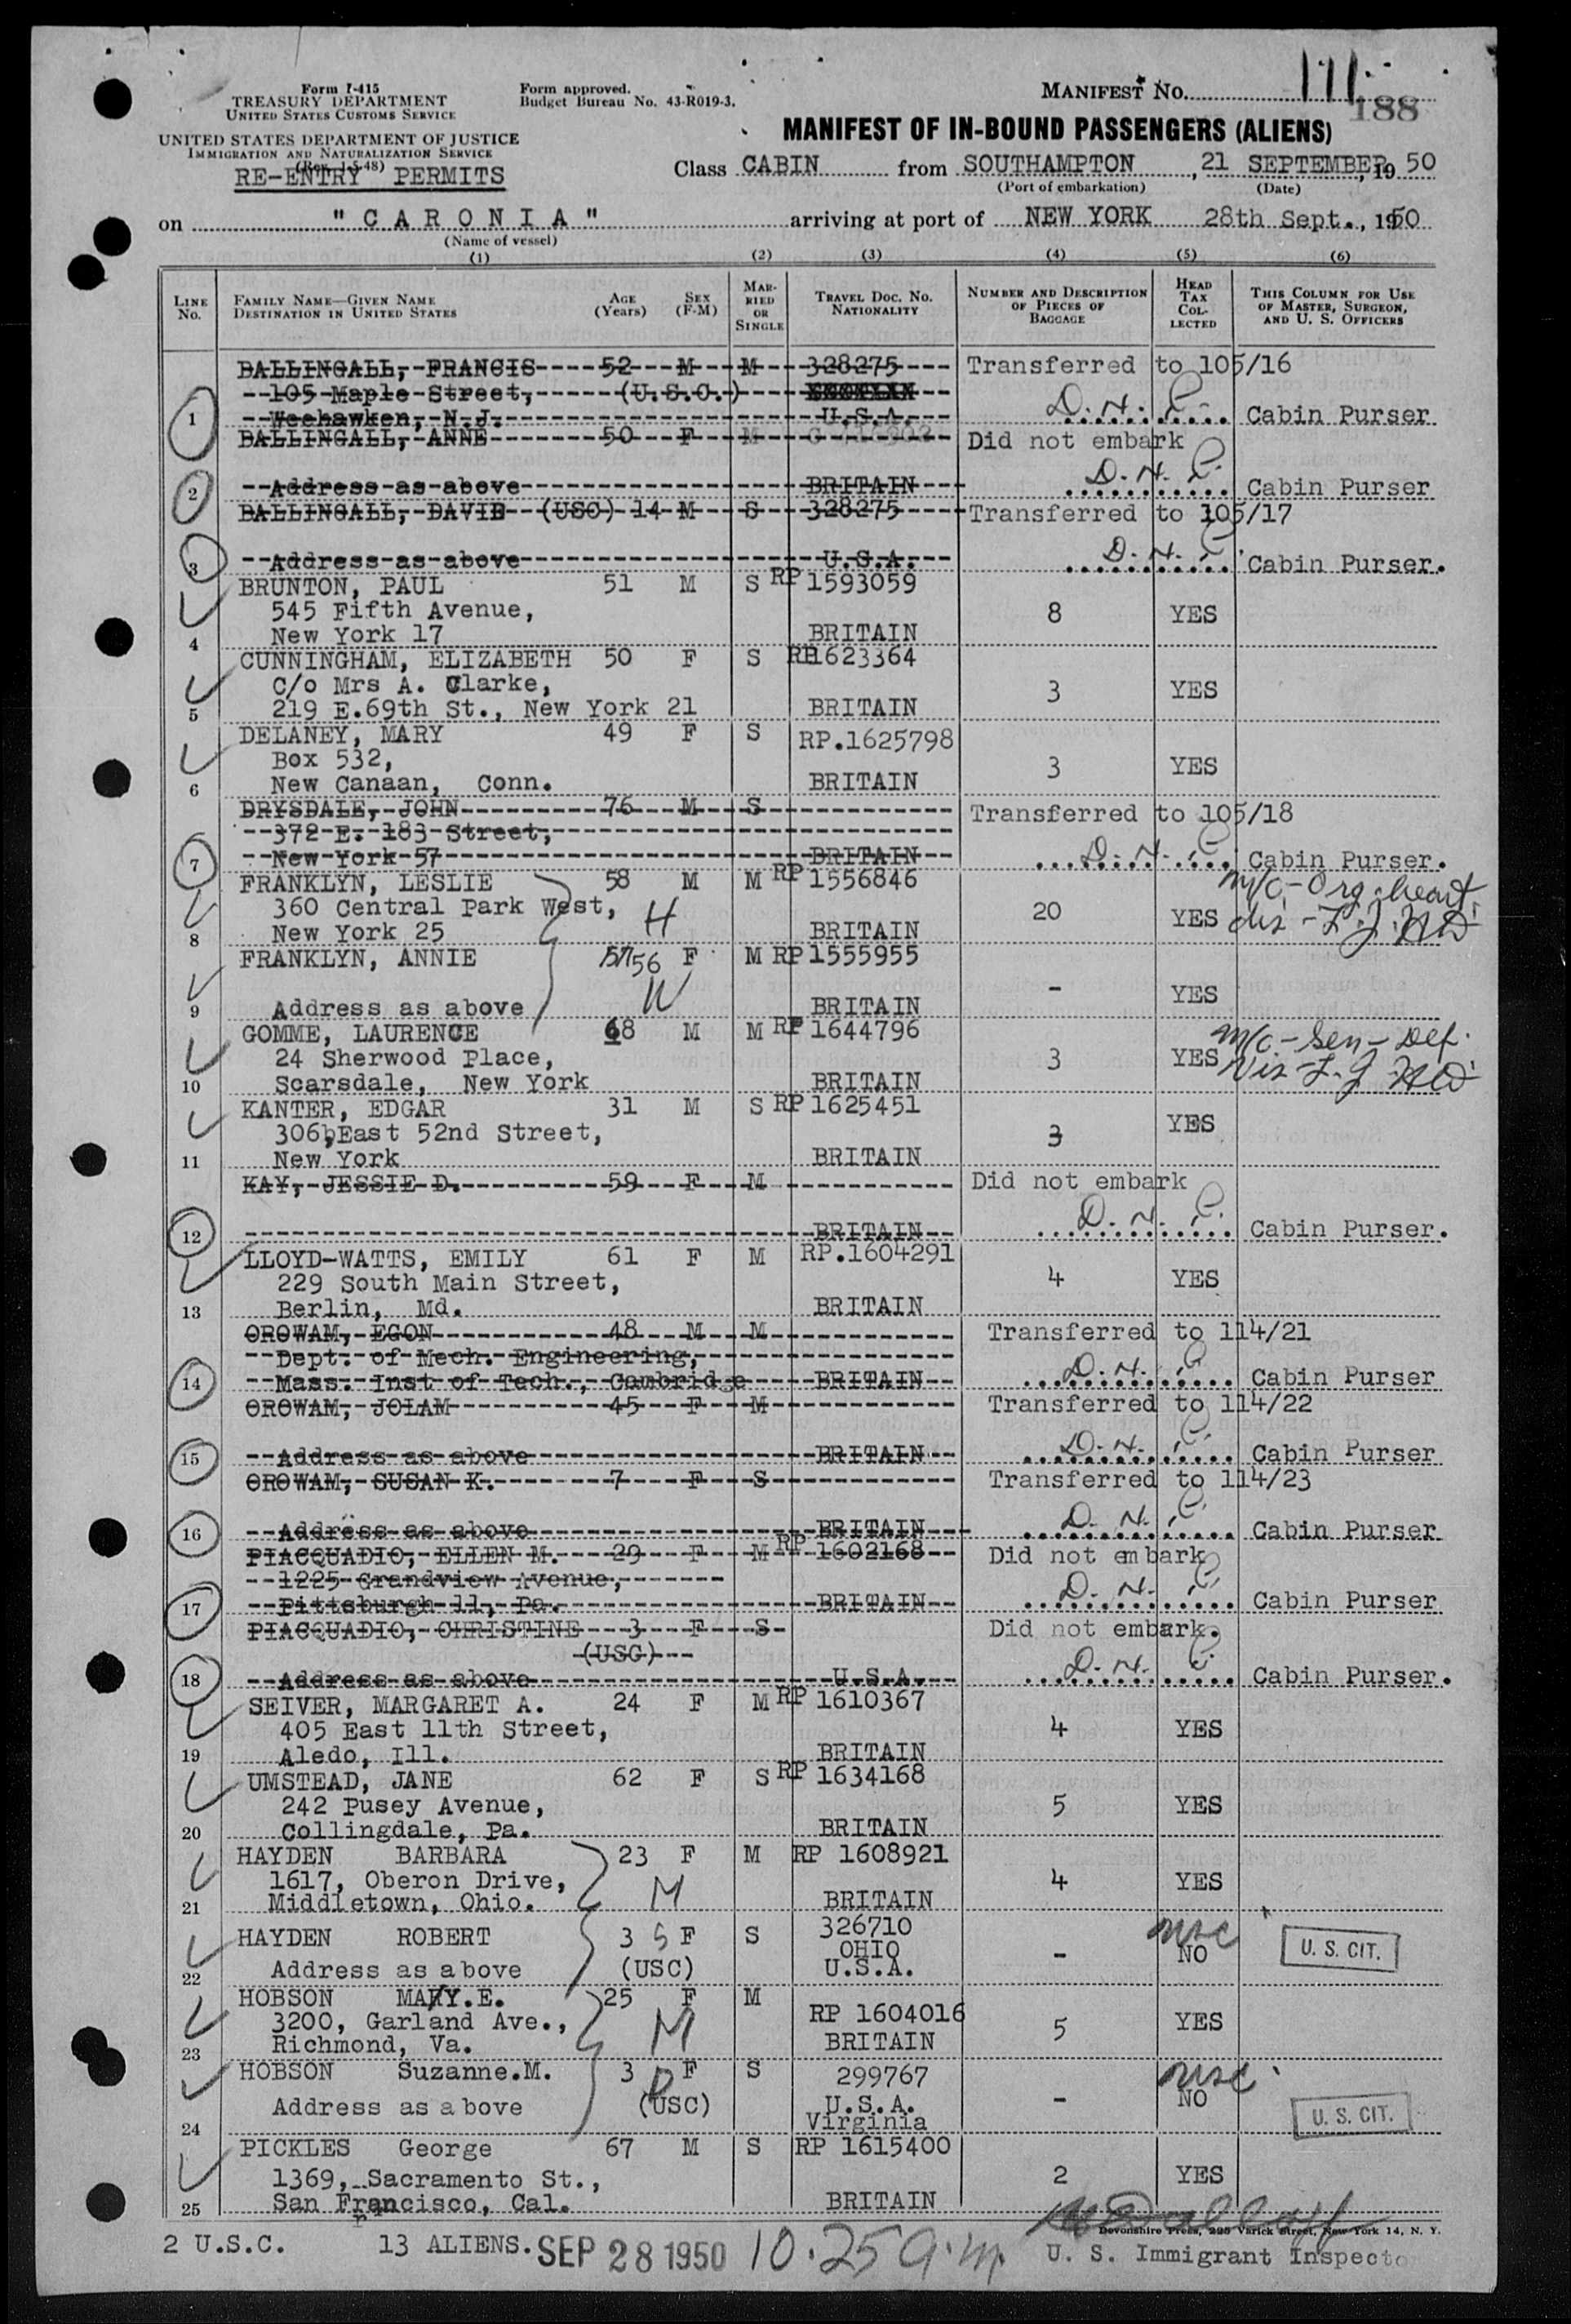 Form I-415
TREASURY DEPARTMENT
UNITED STATES CUSTOMS SERVICE
UNITED STATES DEPARTMENT OF JUSTICE
IMMIGRATION AND NATURALIZATION SERVICE
(Rev. 1-5-48)
RE-ENTRY PERMITS
Form approved.
Budget Bureau No. 43-R019-3.
MANIFEST NO. 111
188
MANIFEST OF IN-BOUND PASSENGERS (ALIENS)
Class CABIN from SOUTHAMPTON, 21 SEPTEMBER, 19 50
(Port of embarkation) (Date)
on "CARONIA" arriving at port of NEW YORK 28th Sept., 1950
(Name of vessel)
(1) (2) (3) (4) (5) (6)
LINE NO. FAMILY NAME—GIVEN NAME DESTINATION IN UNITED STATES AGE (YEARS) SEX (F-M) MARRIED OR SINGLE TRAVEL DOC. NO. NATIONALITY NUMBER AND DESCRIPTION OF PIECES OF BAGGAGE HEAD TAX COLLECTED THIS COLUMN FOR USE OF MASTER, SURGEON, AND U. S. OFFICERS
BALLINGALL, FRANCIS 52 M M 328275 Transferred to 105/16
105 Maple Street, (U.S.C.)
1 Weehawken, N.J. U.S.A. D.N.E. Cabin Purser
BALLINGALL, ANNE 50 F M Did not embark
2 Address as above BRITAIN D.N.E. Cabin Purser
BALLINGALL, DAVID (USC) 14 M S 328275 Transferred to 105/17
3 Address as above U.S.A. D.N.E. Cabin Purser.
BRUNTON, PAUL 51 M S RP 1593059
545 Fifth Avenue, 8 YES
4 New York 17 BRITAIN
CUNNINGHAM, ELIZABETH 50 F S RP 1623364
c/o Mrs A. Clarke, 3 YES
5 219 E.69th St., New York 21 BRITAIN
DELANEY, MARY 49 F S RP.1625798
Box 532, 3 YES
6 New Canaan, Conn. BRITAIN
DRYSDALE, JOHN 76 M S Transferred to 105/18
372 E. 183 Street,
7 New York 57 BRITAIN D.N.E. Cabin Purser.
FRANKLYN, LESLIE 58 M M RP 1556846 m/c - Org. heart
360 Central Park West, H 20 YES dis -
8 New York 25 BRITAIN
FRANKLYN, ANNIE 57 56 F M RP 1555955
W - YES
9 Address as above BRITAIN
GOMME, LAURENCE 68 M M RP 1644796 m/c - Sen - Def.
24 Sherwood Place, 3 YES Vis
10 Scarsdale, New York BRITAIN
KANTER, EDGAR 31 M S RP 1625451
306b, East 52nd Street, 3 YES
11 New York BRITAIN
KAY, JESSIE D. 59 F M Did not embark
12 BRITAIN D.N.E. Cabin Purser.
LLOYD-WATTS, EMILY 61 F M RP.1604291
229 South Main Street, 4 YES
13 Berlin, Md. BRITAIN
OROWAM, EGON 48 M M Transferred to 114/21
Dept. of Mech. Engineering,
14 Mass. Inst of Tech., Cambridge BRITAIN D.N.E. Cabin Purser
OROWAM, JOLAM 45 F M Transferred to 114/22
15 Address as above BRITAIN D.N.E. Cabin Purser
OROWAM, SUSAN K. 7 F S Transferred to 114/23
16 Address as above BRITAIN D.N.E. Cabin Purser
PIACQUADIO, ELLEN M. 29 F M RP 1602168 Did not embark
1225 Grandview Avenue,
17 Pittsburgh 11, Pa. BRITAIN D.N.E. Cabin Purser
PIACQUADIO, CHRISTINE 3 F S Did not embark.
(USC)
18 Address as above U.S.A. D.N.E. Cabin Purser.
SEIVER, MARGARET A. 24 F M RP 1610367
405 East 11th Street, 4 YES
19 Aledo, Ill. BRITAIN
UMSTEAD, JANE 62 F S RP 1634168
242 Pusey Avenue, 5 YES
20 Collingdale, Pa. BRITAIN
HAYDEN BARBARA 23 F M RP 1608921
1617, Oberon Drive, M 4 YES
21 Middletown, Ohio. BRITAIN
HAYDEN ROBERT 3 S F S 326710 usc
OHIO - NO U. S. CIT.
22 Address as above (USC) U.S.A.
HOBSON MARY.E. 25 F M RP 1604016
3200, Garland Ave., M 5 YES
23 Richmond, Va. BRITAIN
HOBSON Suzanne.M. 3 D F S 299767 usc
Address as above (USC) U.S.A. - NO U. S. CIT.
24 Virginia
PICKLES George 67 M S RP 1615400
1369, Sacramento St., 2 YES
25 San Francisco, Cal. BRITAIN
Devonshire Press, 225 Varick Street, New York 14, N. Y.
2 U.S.C. 13 ALIENS. SEP 28 1950 10.25 a.m. U. S. Immigrant Inspecto